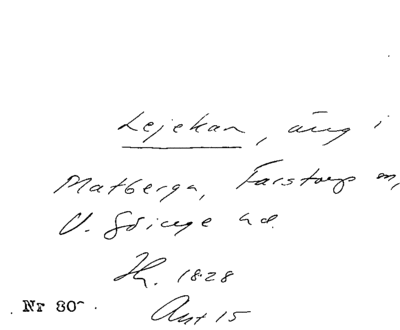 Lejekan, äng i
Matberga, Farstorps sn,
V. Göinge hd.
Hr. 1828
Akt 15
Nr 80